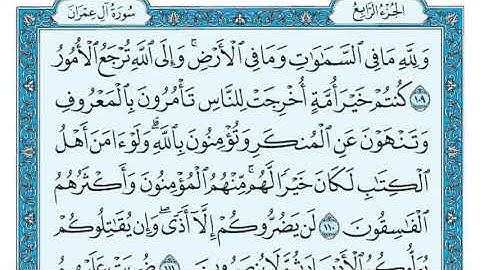 الجزء الرابع
سورة آل عمران
وَلِلَّهِ مَا فِي السَّمَاوَاتِ وَمَا فِي الْأَرْضِ ۚ وَإِلَى اللَّهِ تُرْجَعُ الْأُمُورُ
١٠٩ كُنتُمْ خَيْرَ أُمَّةٍ أُخْرِجَتْ لِلنَّاسِ تَأْمُرُونَ بِالْمَعْرُوفِ
وَتَنْهَوْنَ عَنِ الْمُنكَرِ وَتُؤْمِنُونَ بِاللَّهِ ۗ وَلَوْ ءَامَنَ أَهْلُ
الْكِتَابِ لَكَانَ خَيْرًا لَّهُم ۚ مِّنْهُمُ الْمُؤْمِنُونَ وَأَكْثَرُهُمُ
الْفَاسِقُونَ ١١٠ لَن يَضُرُّوكُمْ إِلَّا أَذًى ۖ وَإِن يُقَاتِلُوكُمْ
يُوَلُّوكُمُ الْأَدْبَارَ ثُمَّ لَا يُنصَرُونَ ١١١ ضُرِبَتْ عَلَيْهِمُ